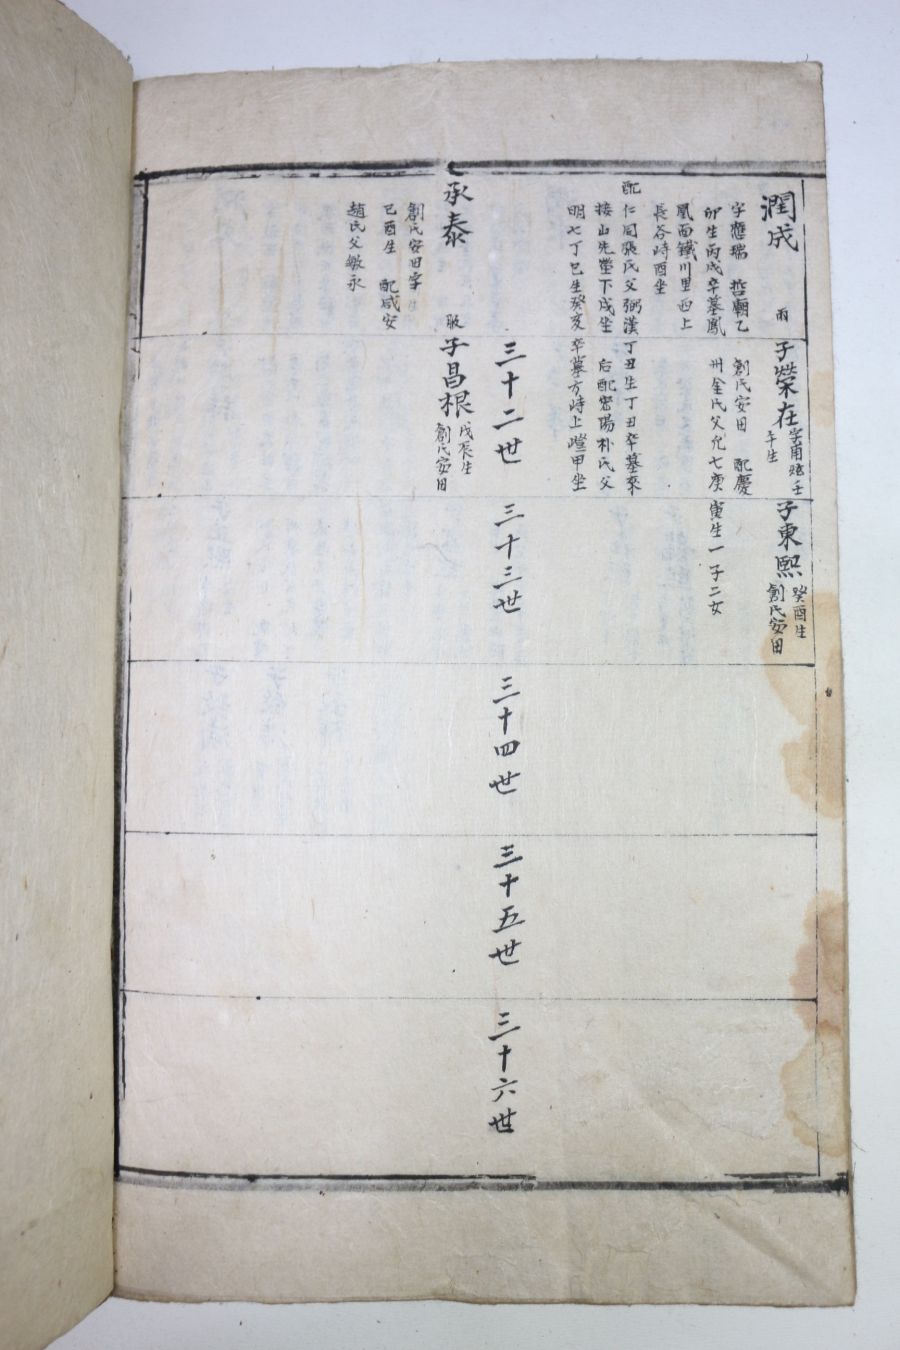 潤成
雨
字應瑞 哲廟乙
卯生丙戌卒墓鳳
凰面鐵川里西上
長谷時酉坐
配仁同張氏父弼漢丁丑生丁丑卒墓來
接山先塋下戌坐 后配密陽朴氏父
明七丁巳生癸亥卒墓方時上嶝甲坐
子榮在
字甫炫壬
午生
創氏安田 配慶
州金氏父允七庚寅生一子二女
子東熙
癸酉生
創氏安田
三十二世
三十三世
三十四世
三十五世
三十六世
承泰
創氏安田字
己酉生 配咸安
趙氏父敏永
子昌根
戊辰生
創氏安田